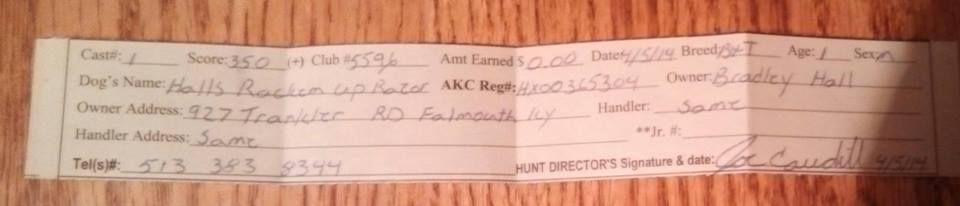 Cast#: 1 Score: 350 (+) Club #5596 Amt Earned $ 0.00 Date: 4/5/14 Breed: B+T Age: 1 Sex: m
Dog's Name: Halls Rackem up Razor AKC Reg#: HX00365304 Owner: Bradley Hall
Owner Address: 927 RD Falmouth Ky Handler: Same
Handler Address: Same **Jr. #:
Tel(s)#: 513 383 8344 HUNT DIRECTOR'S Signature & date: Joe Caudill 4/5/14